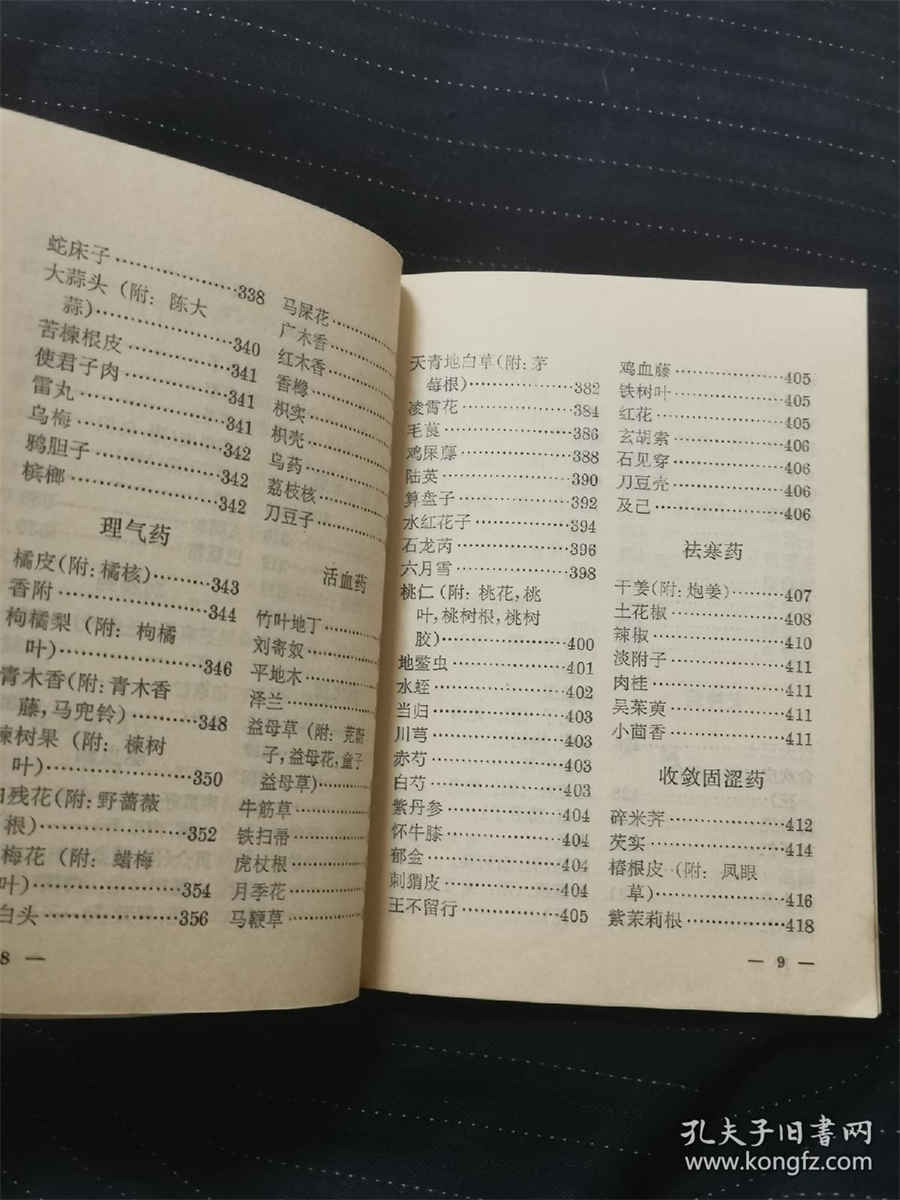 蛇床子……………338
大蒜头（附：陈大
蒜）………………340
苦楝根皮…………341
使君子肉…………341
雷丸………………341
乌梅………………342
鸦胆子……………342
槟榔………………342
理气药
橘皮（附：橘核）……343
香附………………344
枸橘梨（附：枸橘
叶）………………346
青木香（附：青木香
藤，马兜铃）………348
楝树果（附：楝树
叶）………………350
残花（附：野蔷薇
根）………………352
梅花（附：蜡梅
叶）………………354
白头………………356
8 —
马屎花
广木香
红木香
香橼
枳实
枳壳
乌药
荔枝核
刀豆子
活血药
竹叶地丁
刘寄奴
平地木
泽兰
益母草（附：茺蔚
子，益母花，童子
益母草）
牛筋草
铁扫帚
虎杖根
月季花
马鞭草
天青地白草（附：茅
莓根）……………382
凌霄花……………384
毛茛………………386
鸡屎藤……………388
陆英………………390
算盘子……………392
水红花子…………394
石龙芮……………396
六月雪……………398
桃仁（附：桃花，桃
叶，桃树根，桃树
胶）………………400
地鳖虫……………401
水蛭………………402
当归………………403
川芎………………403
赤芍………………403
白芍………………403
紫丹参……………404
怀牛膝……………404
郁金………………404
刺猬皮……………404
王不留行…………405
鸡血藤……………405
铁树叶……………405
红花………………405
玄胡索……………406
石见穿……………406
刀豆壳……………406
及己………………406
祛寒药
干姜（附：炮姜）……407
土花椒……………408
辣椒………………410
淡附子……………411
肉桂………………411
吴茱萸……………411
小茴香……………411
收敛固涩药
碎米荠……………412
芡实………………414
椿根皮（附：凤眼
草）………………416
紫茉莉根…………418
— 9 —
孔夫子旧書网
www.kongfz.com